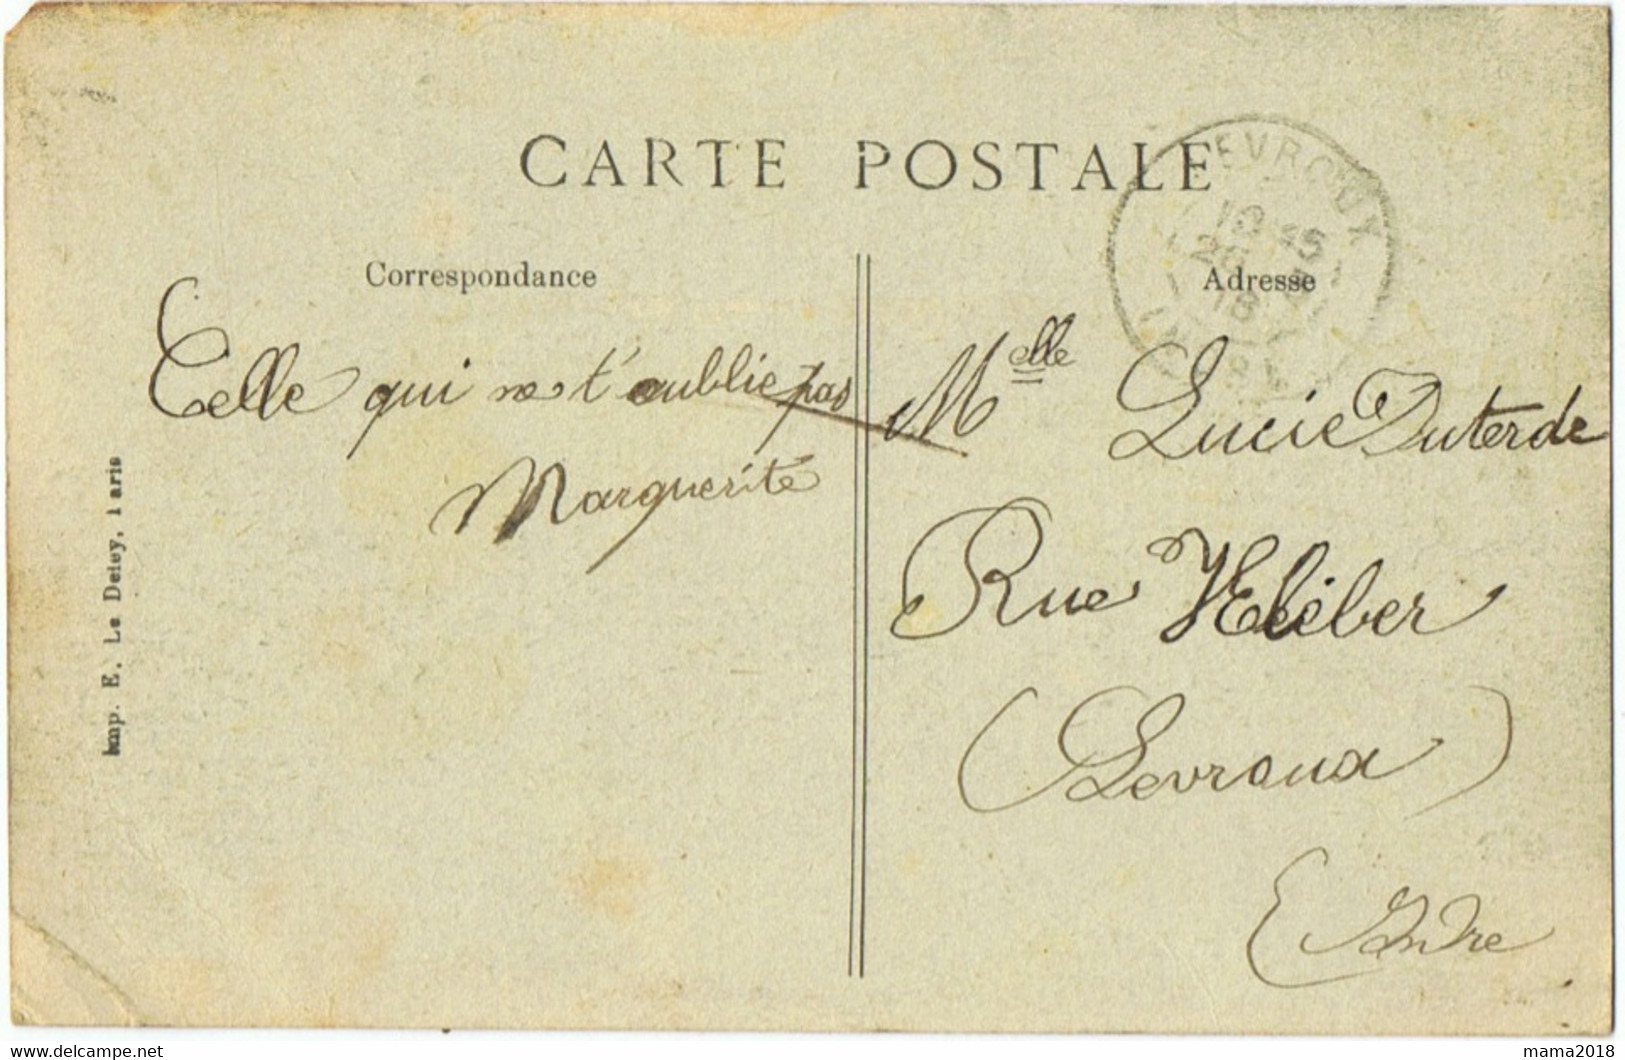 CARTE POSTALE
Correspondance
Adresse
Celle qui ne t'oublie pas
Marguerite
Melle Lucie Duterde
Rue Kléber
(Levroux)
(Indre
Imp. E. Le Deley, Paris
LEVROUX
delcampe.net
mama2018